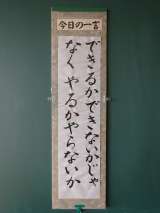 今日の一言
できるかできないかじゃ
なく やるかやらないか